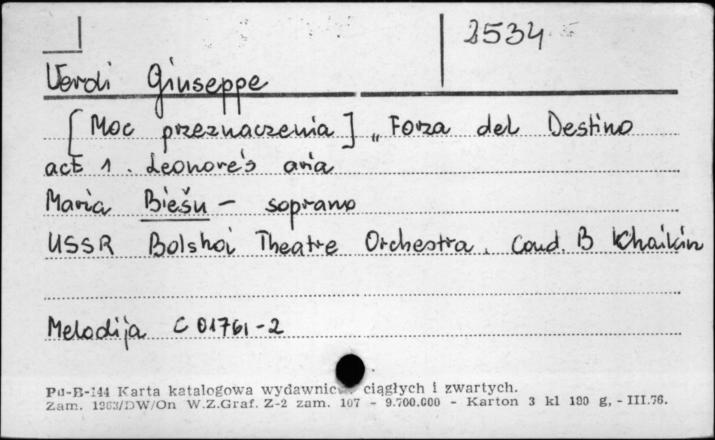 2534
Verdi Giuseppe
[Moc przeznaczenia] „Forza del Destino
act 1. Leonore's aria
Maria Biešu – soprano
USSR Bolshoi Theatre Orchestra. Cond. B Khaikin
Melodija C 01761-2
Pu-B-144 Karta katalogowa wydawnictw ciągłych i zwartych.
Zam. 1963/DW/On W.Z.Graf. Z-2 zam. 107 - 9.700.000 - Karton 3 kl 180 g, - III.76.